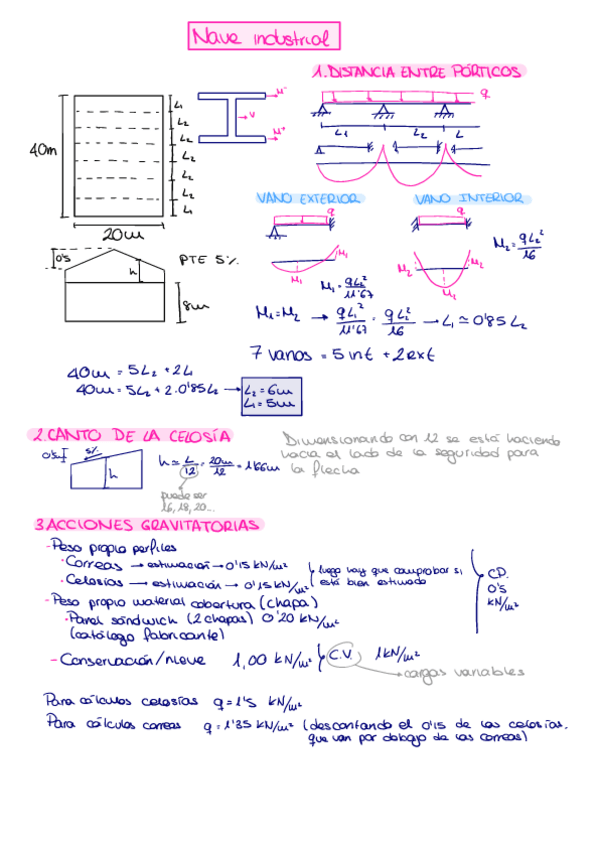 Nave industrial
1. DISTANCIA ENTRE PÓRTICOS
40m
L1
L2
L2
L2
L2
L2
L1
20m
M-
V
M+
q
L1 L2 L
VANO EXTERIOR
VANO INTERIOR
q
q
M1
M1
M1 = qL1²/11'67
M2
M2
M2
M2 = qL2²/16
0'5
h
PTE 5%
8m
M1 = M2 → qL1²/11'67 = qL2²/16 → L1 ≃ 0'85 L2
7 vanos = 5 int + 2 ext
40m = 5L2 + 2L1
40m = 5L2 + 2·0'85L2 → L2 = 6m
L1 = 5m
2. CANTO DE LA CELOSÍA
0'5m
5%
h
h ≃ L/12 = 20m/12 = 1'66m
puede ser
16, 18, 20...
Dimensionando con 12 se está haciendo
hacia el lado de la seguridad para
la flecha
3. ACCIONES GRAVITATORIAS
- Peso propio perfiles
· Correas → estimación → 0'15 kN/m²
· Celosías → estimación → 0'15 kN/m²
luego hay que comprobar si
está bien estimado
- Peso propio material cobertura (chapa)
· Panel sándwich (2 chapas) 0'20 kN/m²
(catálogo fabricante)
C.P.
0'5
kN/m²
- Conservación/nieve 1,00 kN/m² C.V. 1kN/m²
cargas variables
Para cálculos celosías q = 1'5 kN/m²
Para cálculos correas q = 1'35 kN/m² (descontando el 0'15 de las celosías,
que van por debajo de las correas)